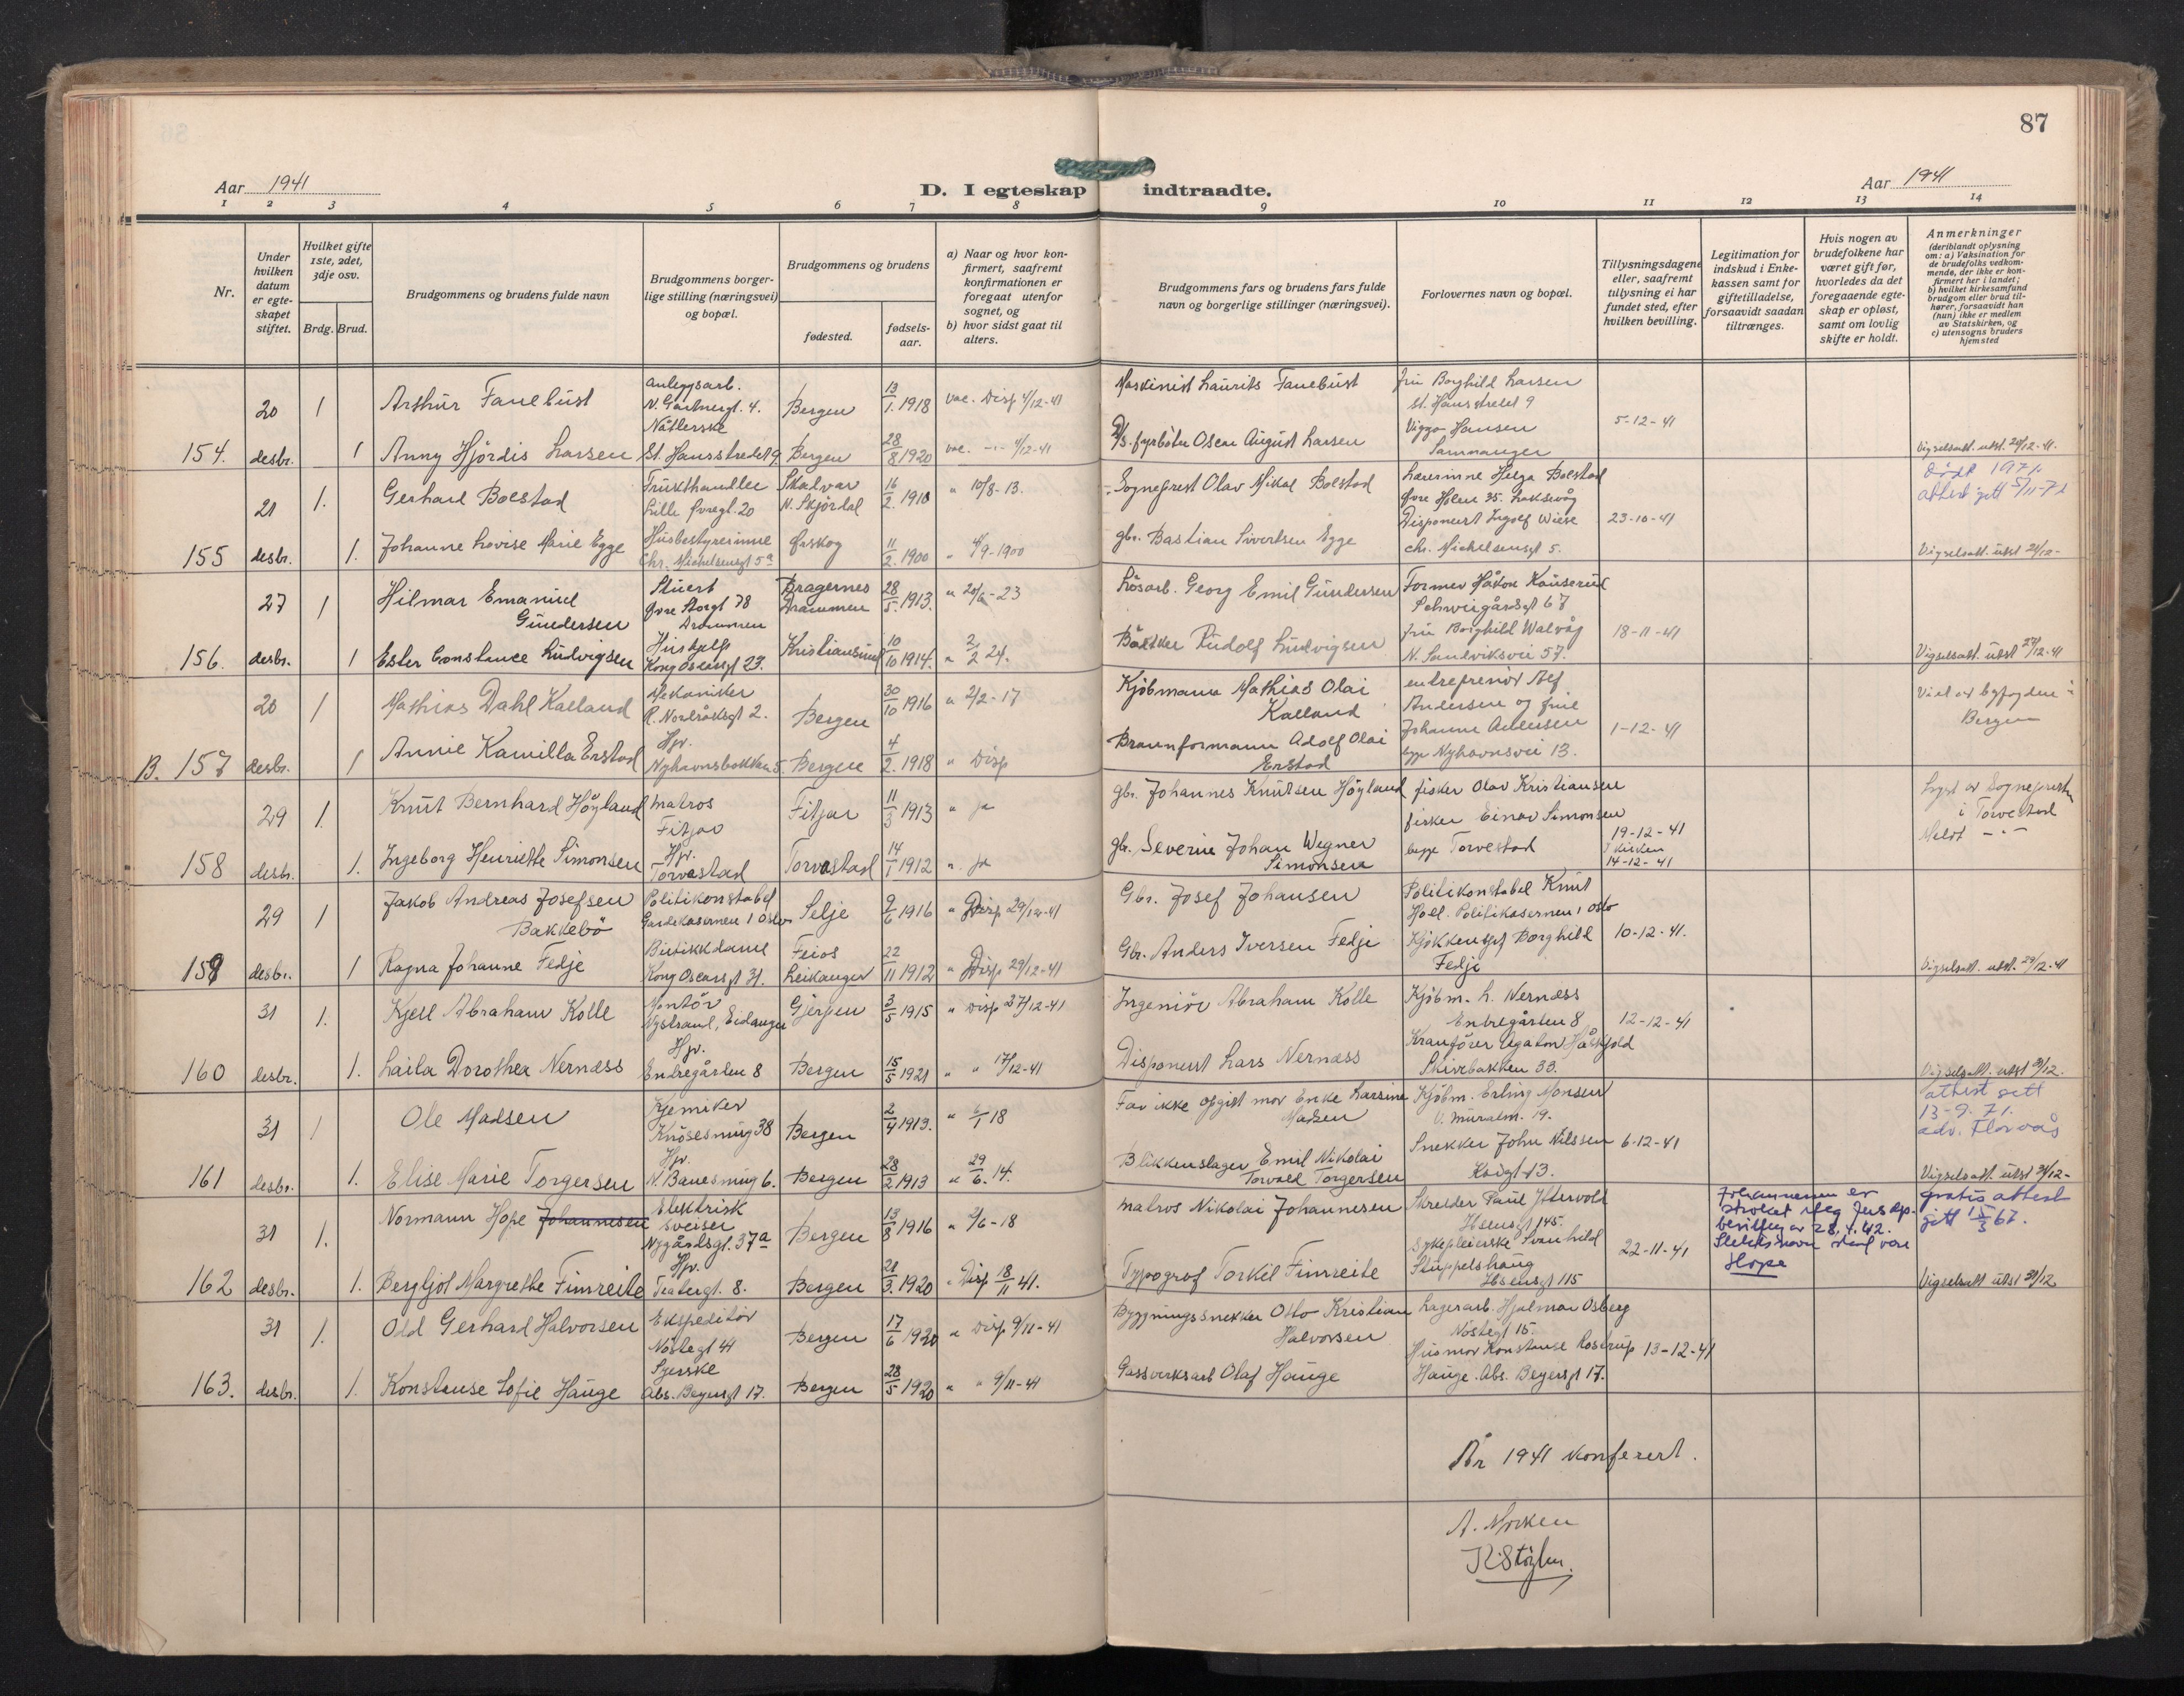 87
Aar 1941
D. I egteskap indtraadte.
Aar 1941
1 2 3 4 5 6 7 8 9 10 11 12 13 14
Nr.
Under hvilken datum er egte-skapet stiftet.
Hvilket gifte 1ste, 2det, 3dje osv.
Brdg. Brud.
Brudgommens og brudens fulde navn
Brudgommens borger-lige stilling (næringsvei) og bopæl.
Brudgommens og brudens
fødested.
fødsels-aar.
a) Naar og hvor kon-firmert, saafremt konfirmationen er foregaat utenfor sognet, og
b) hvor sidst gaat til alters.
Brudgommens fars og brudens fars fulde navn og borgerlige stillinger (næringsvei).
Forlovernes navn og bopæl.
Tillysningsdagene eller, saafremt tillysning ei har fundet sted, efter hvilken bevilling.
Legitimation for indskud i Enke-kassen samt for giftetilladelse, forsaavidt saadan tiltrænges.
Hvis nogen av brudefolkene har været gift før, hvorledes da det foregaaende egte-skap er opløst, samt om lovlig skifte er holdt.
Anmerkninger (deriblandt oplysning om: a) Vaksination for de brudefolks vedkom-mende, der ikke er kon-firmert her i landet; b) hvilket kirkesamfund brudgom eller brud til-hører, forsaavidt han (hun) ikke er medlem av Statskirken, og c) utensogns bruders hjemsted
20 1 Arthur Fanebust anleggsarb. N. Gartnergt. 4. Bergen 13/1. 1918 vac. Disp 4/12-41 Maskinist Laurits Fanebust fru Borghild Larsen St. Hansstredet 9
154. desbr. 1 Anny Hjördis Larsen Nåtlerske St. Hansstredet 9. Bergen 28/8 1920 vac. -"- 4/12-41 D/S. fyrböter Oscar August Larsen Viggo Hansen Samnanger 5-12-41 Vigselsatt. utst. 20/12-41.
21 1. Gerhard Bolstad Frukthandler Lille Øvregt. 20 Skalvar N. Skjördal 16/2. 1910 " 10/8-13. Sogneprest Olav Mikal Bolstad Lærerinne Helga Bolstad Øvre Holen 35. Laksevåg attest gitt 5/11-71
155 desbr. 1. Johanne Lovise Marie Egge Husbestyrerinne Chr. Michelsensgt 5a Ørskog 11/2. 1900 " 4/9-1900 gbr. Bastian Sivertsen Egge Disponent Ingolf Wiese chr. Michelsensgt 5. 23-10-41 Vigselsatt. utst 21/12-
27 1 Hilmar Emanuel Gundersen Stuert Øvre Storgt 78 Drammen Bragernes Drammen 28/5. 1913. " 20/6-23 Lösarb. Georg Emil Gundersen Former Håkon Kauserud Schweigårdsgt 67
156. desbr. 1 Ester Constance Ludvigsen Hushjelp Kong Oscarsgt 23. Kristiansund 10/10 1914. " 2/2 24. Bakker Rudolf Ludvigsen fru Borghild Walvåg N. Sandviksvei 57. 18-11-41 Vigselsatt. utst 27/12-41
20 1 Mathias Dahl Kalland Mekaniker R. Nordråksgt 2. Bergen 30/10 1916 " 2/2-17 Kjöbmann Mathias Olai Kalland entreprenör Alf Andersen og frue Viet av byfogden i Bergen
B. 157 desbr. 1 Annie Kamilla Erstad Hjv. Nyhavnsbakken 5. Bergen 4/2. 1918 " Disp Brannformann Adolf Olai Erstad Johanne Andersen begge Nyhavnsvei 13. 1-12-41
29 1. Knut Bernhard Höyland matros Fitjar Fitjar 11/3 1913 " ja gbr. Johannes Knutsen Höyland fisker Olav Kristiansen Lyst av Sogneprest i Torvestad
158 desbr. 1. Ingeborg Henriette Simonsen Hjv. Torvastad Torvastad 14/1 1912 " ja gbr. Severin Johan Wegner Simonsen fisker Einar Simonsen begge Torvestad 19-12-41 I kirken 14-12-41 Meldt -"-
29 1 Jakob Andreas Josefsen Bakkebö Politikonstabel Gardekasernen i Oslo Selje 9/6 1916 " Disp 29/12-41 Gbr. Josef Johansen Politikonstabel Knut Holl. Politikasernen i Oslo
159 desbr. 1 Ragna Johanne Fedje Butikkdame Kong Oscarsgt 31. Feios Leikanger 22/11 1912 " Disp 29/12-41 Gbr. Anders Iversen Fedje Kjökkensjef Borghild Fedje 10-12-41. Vigselsatt. utst. 29/12-41
31 1. Kjell Abraham Kolle Montör Nystrand, Eidanger Gjerpen 3/5 1915 " Disp 27/12-41 Ingeniör Abraham Kolle Kjöbm. L. Nernæss Entregården 8 12-12-41
160 desbr. 1. Laila Dorothea Nernæss Hjv. Entregården 8 Bergen 15/5 1921 " " 17/12-41 Disponent Lars Nernæss Kranförer Agaton Skivebakken 33. Vigselsatt. utst 31/12.
31 1 Ole Madsen Kjemiker Knösesmug 38 Bergen 2/4 1913. " 6/1 18 Far ikke opgitt mor Enke Larsine Madsen Kjöbm. Erling Monsen V. Muralm. 19. attest gitt 13-9-71. adv. Florvåg
161 desbr. 1. Elise Marie Torgersen Hjv. N. Banesmug 6. Bergen 28/2 1913 " 29/6. 14. Blikkenslager Emil Nikolai Torvald Torgersen Snekker John Nilssen Kroigt 13. 6-12-41 Vigselsatt. utst 31/12-
31 1. Normann Hope Johannesen Elektrisk sveiser Nygårdsgt. 37a Bergen 13/8 1916 " 2/6-18 matros Nikolai Johannesen Skredder Paul Yttervold Ibsensgt 145. Johannessen er stroket iflg Jus. dep. bevilling av 28.4.42. Slektsnavn skal være Hope gratis attest gitt 15/3 67.
162 desbr. 1. Bergljot Margrethe Fimreite Hjv. Teatergt. 8. Bergen 21/3. 1920 " Disp 18/11 41. Typograf Torkil Fimreite Sykepleierske Svanhild Stuppelshaug Ibsensgt 115 22-11-41 Vigselsatt utst 31/12
31 1. Odd Gerhard Halvorsen Ekspeditör Nöstegt 41 Bergen 17/6 1920 " Disp 9/11-41 Bygningssnekker Otto Kristian Halvorsen Lagerarb. Hjalmar Osberg Nöstegt 15.
163. desbr. 1. Konstanse Sofie Hauge Syerske Abs. Beyersgt 17. Bergen 28/5 1920 " " 9/11-41 Gassverksarb Olaf Hauge Husmor Konstanse Rostrup Hauge. Abs. Beyersgt 17. 13-12-41
År 1941 konferert.